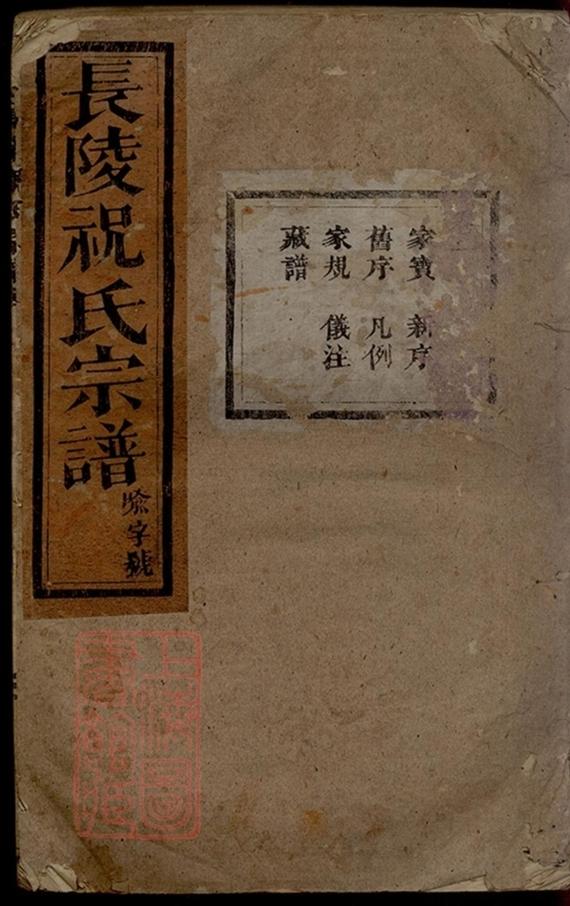 長陵祝氏宗譜
字號
家寶 新序
舊序 凡例
家規 儀注
藏譜